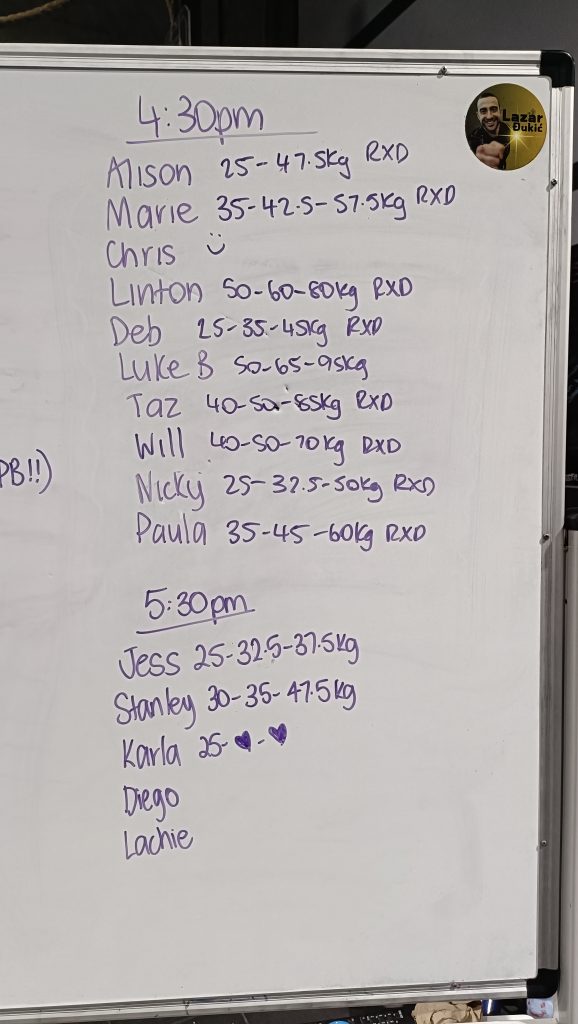 4:30pm
Lazar
Đukić
Alison 25-47.5kg RXD
Marie 35-42.5-57.5kg RXD
Chris
Linton 50-60-80kg RXD
Deb 25-35-45kg RXD
Luke B 50-65-95kg
Taz 40-50-85kg RXD
Will 40-50-70kg RXD
PB!!)
Nicky 25-37.5-50kg RXD
Paula 35-45-60kg RXD
5:30pm
Jess 25-32.5-37.5kg
Stanley 30-35-47.5kg
Karla 25-♥-♥
Diego
Lachie